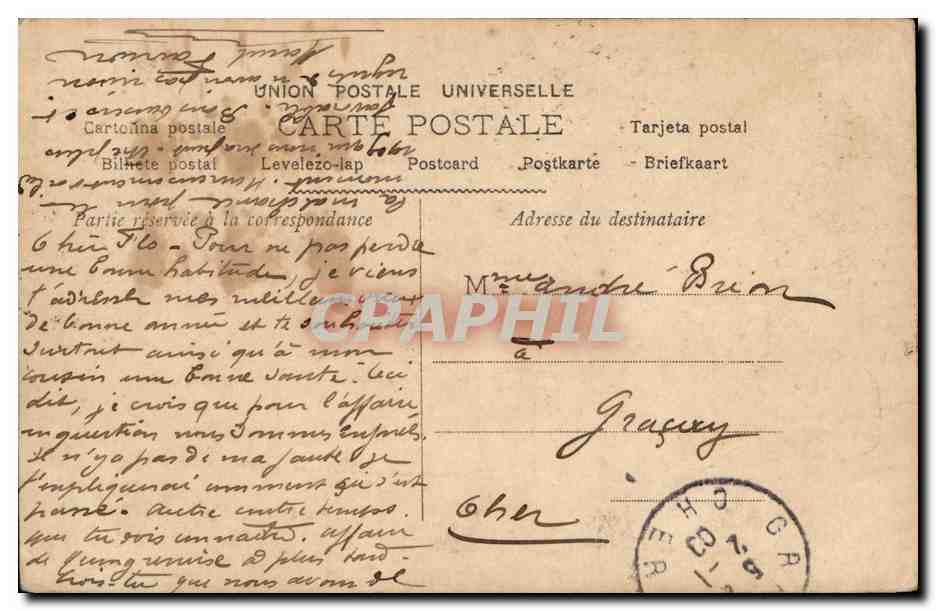 UNION POSTALE UNIVERSELLE
CARTE POSTALE
Cartolina postale
Tarjeta postal
Bilhete postal Levelezo-lap Postcard Postkarte Briefkaart
Partie réservée à la correspondance
Cher Flo - Pour ne pas perdre
une bonne habitude, je viens
t'adresser mes meilleurs vœux
de bonne année et te souhaiter
surtout ainsi qu'à mon
cousin une bonne santé. Ceci
dit, je crois que pour l'affaire
en question nous sommes
Il n'y a pas de ma faute je
t'expliquerai comment ça s'est
passé. Autre contre temps.
que tu dois connaître. affaire
remise à plus tard -
Crois-tu que nous avons de
la malchance pour le
moment.
1909 qui nous
favorable. Bons baisers et
Adresse du destinataire
Mme André Brion
à
Graçay
Cher
CPAPHIL
GRA
CHER